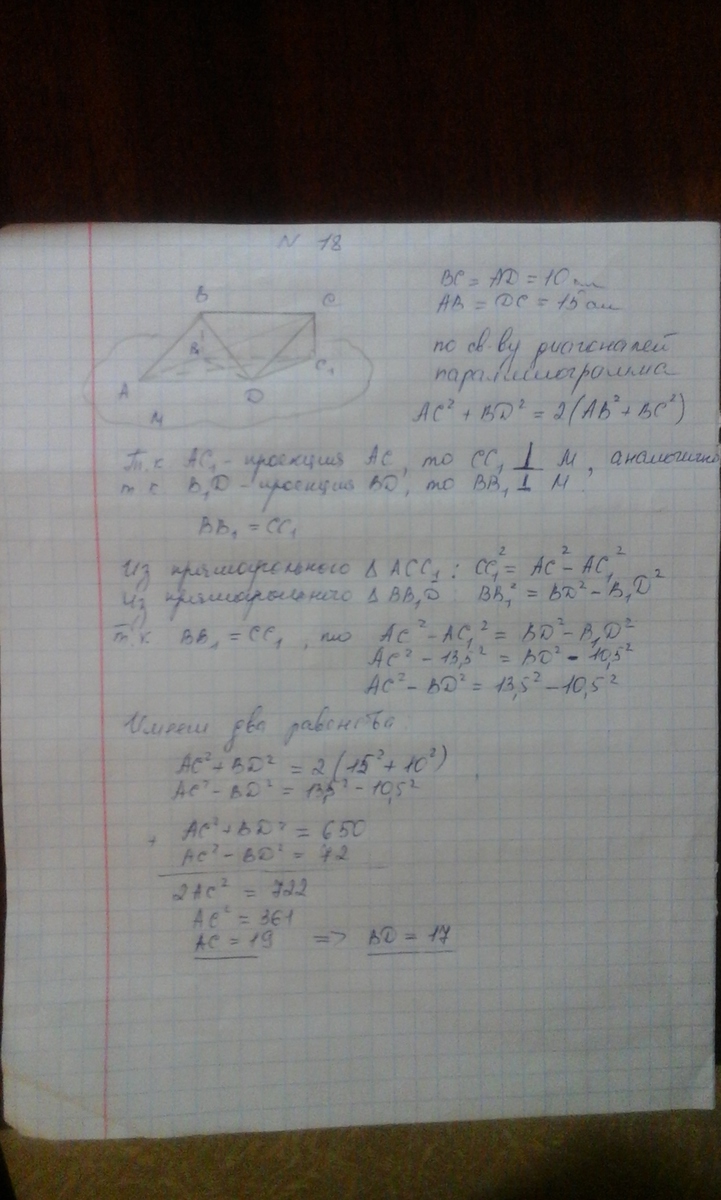 N 18
BC = AD = 10 см
AB = DC = 15 см
B
C
B₁
C₁
A
D
M
по св-ву диагоналей
параллелограмма
AC² + BD² = 2(AB² + BC²)
Т.к. AC₁ - проекция AC, то CC₁ ⊥ M, аналогично
т.к. B₁D - проекция BD, то BB₁ ⊥ M.
BB₁ = CC₁
Из прямоугольного Δ ACC₁: CC₁² = AC² - AC₁²
Из прямоугольного Δ BB₁D: BB₁² = BD² - B₁D²
т.к. BB₁ = CC₁, то AC² - AC₁² = BD² - B₁D²
AC² - 13,5² = BD² - 10,5²
AC² - BD² = 13,5² - 10,5²
Имеем два равенства:
AC² + BD² = 2(15² + 10²)
AC² - BD² = 13,5² - 10,5²
+ AC² + BD² = 650
AC² - BD² = 72
2AC² = 722
AC² = 361
AC = 19 => BD = 17